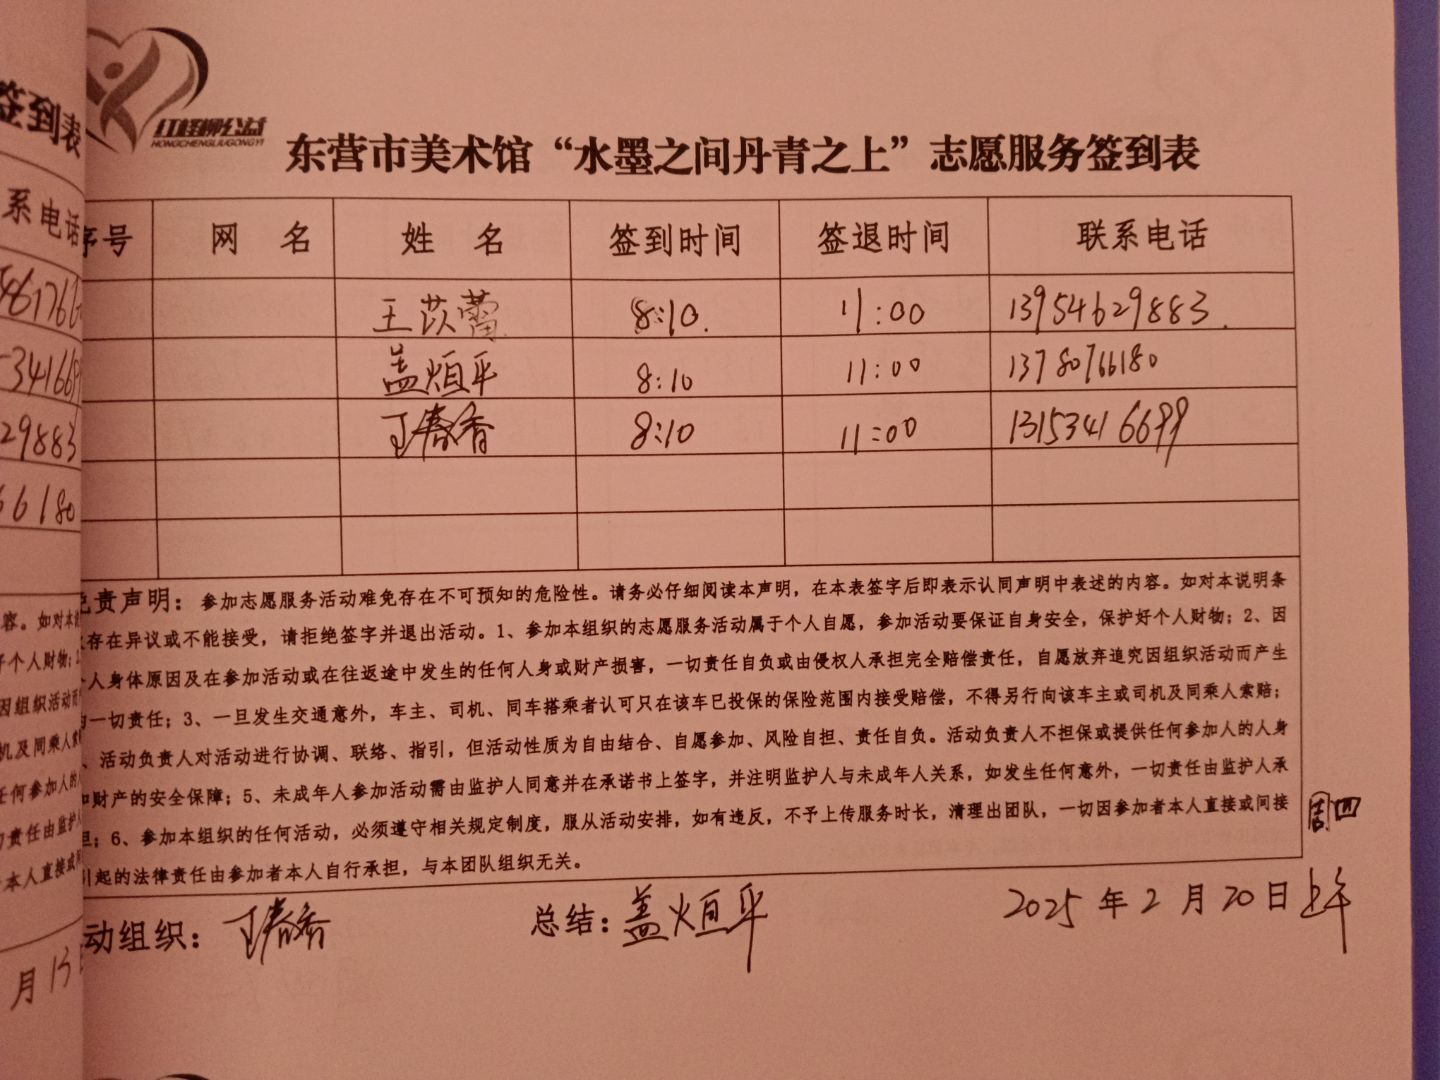 签到表
红柽柳公益
HONGCHENGLIUGONGYI
东营市美术馆“水墨之间丹青之上”志愿服务签到表
系电话
序号 网 名 姓 名 签到时间 签退时间 联系电话
王苡蕾 8:10. 11:00 13954629883.
盖烜平 8:10 11:00 13780766180
王春香 8:10 11:00 13153416699
29883
66180
免责声明：参加志愿服务活动难免存在不可预知的危险性。请务必仔细阅读本声明，在本表签字后即表示认同声明中表述的内容。如对本说明条
存在异议或不能接受，请拒绝签字并退出活动。1、参加本组织的志愿服务活动属于个人自愿，参加活动要保证自身安全，保护好个人财物；2、因
人身体原因及在参加活动或在往返途中发生的任何人身或财产损害，一切责任自负或由侵权人承担完全赔偿责任，自愿放弃追究因组织活动而产生
一切责任；3、一旦发生交通意外，车主、司机、同车搭乘者认可只在该车已投保的保险范围内接受赔偿，不得另行向该车主或司机及同乘人索赔；
、活动负责人对活动进行协调、联络、指引，但活动性质为自由结合、自愿参加、风险自担、责任自负。活动负责人不担保或提供任何参加人的人身
财产的安全保障；5、未成年人参加活动需由监护人同意并在承诺书上签字，并注明监护人与未成年人关系，如发生任何意外，一切责任由监护人承
担；6、参加本组织的任何活动，必须遵守相关规定制度，服从活动安排，如有违反，不予上传服务时长，清理出团队，一切因参加者本人直接或间接
引起的法律责任由参加者本人自行承担，与本团队组织无关。
周四
动组织：王春香 总结：盖烜平 2025年2月20日上午
月13